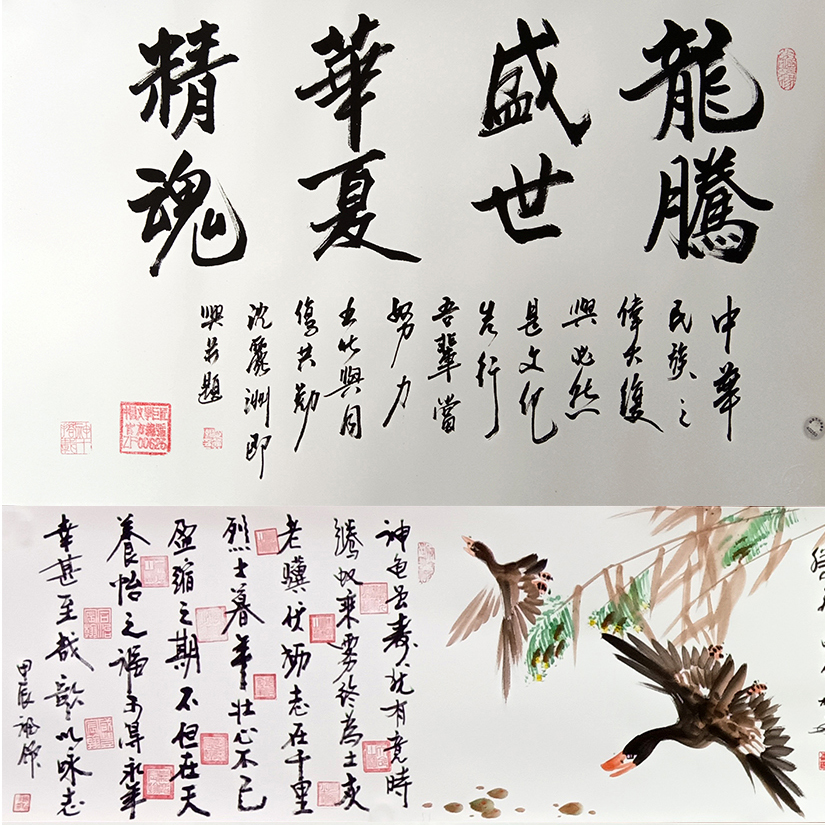 龍騰
盛世
華夏
精魂
中華
民族之
偉大復
興必然
是文化
先行
吾輩當
努力
與同
共勉
沈麗洲即
興並題
神龟虽壽猶有竟時
騰蛇乘雾終為土灰
老驥伏枥志在千里
烈士暮年壮心不已
盈缩之期不但在天
養怡之福可得永年
幸甚至哉歌以咏志
甲辰